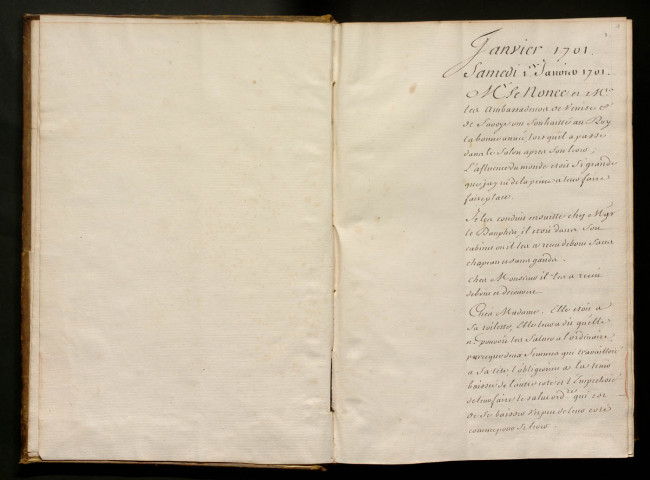 Janvier 1701.
Samedi 1er Janvier 1701.
Mr. le Nonce et Mrs
les Ambassadeurs de Venise et
de Savoye ont souhaitté au Roy
la bonne année, lors qu'il a passé
dans le Salon apres son lever,
L'affluence du monde etoit si grande
que j'ay eu de la peine a leur faire
faire place.
Je les ay conduit ensuitte chez Mgr
le Dauphin, il etoit dans son
cabinet ou il les a receu debout sans
chapeau et sans gands.
Chez Monsieur il les a receu
debout et decouvert.
Chez Madame. Elle etoit a
sa toilette, Elle leur a dit qu'elle
ne pouvoit les saluer a l'ordinaire
parce que deux femmes qui travailloient
a sa teste l'obligeoient a la tenir
baissée de l'autre coté et l'Empechoit
de leur faire le salut ordre. qui est
de se baisser un peu de leur coté
comme pour se lever.